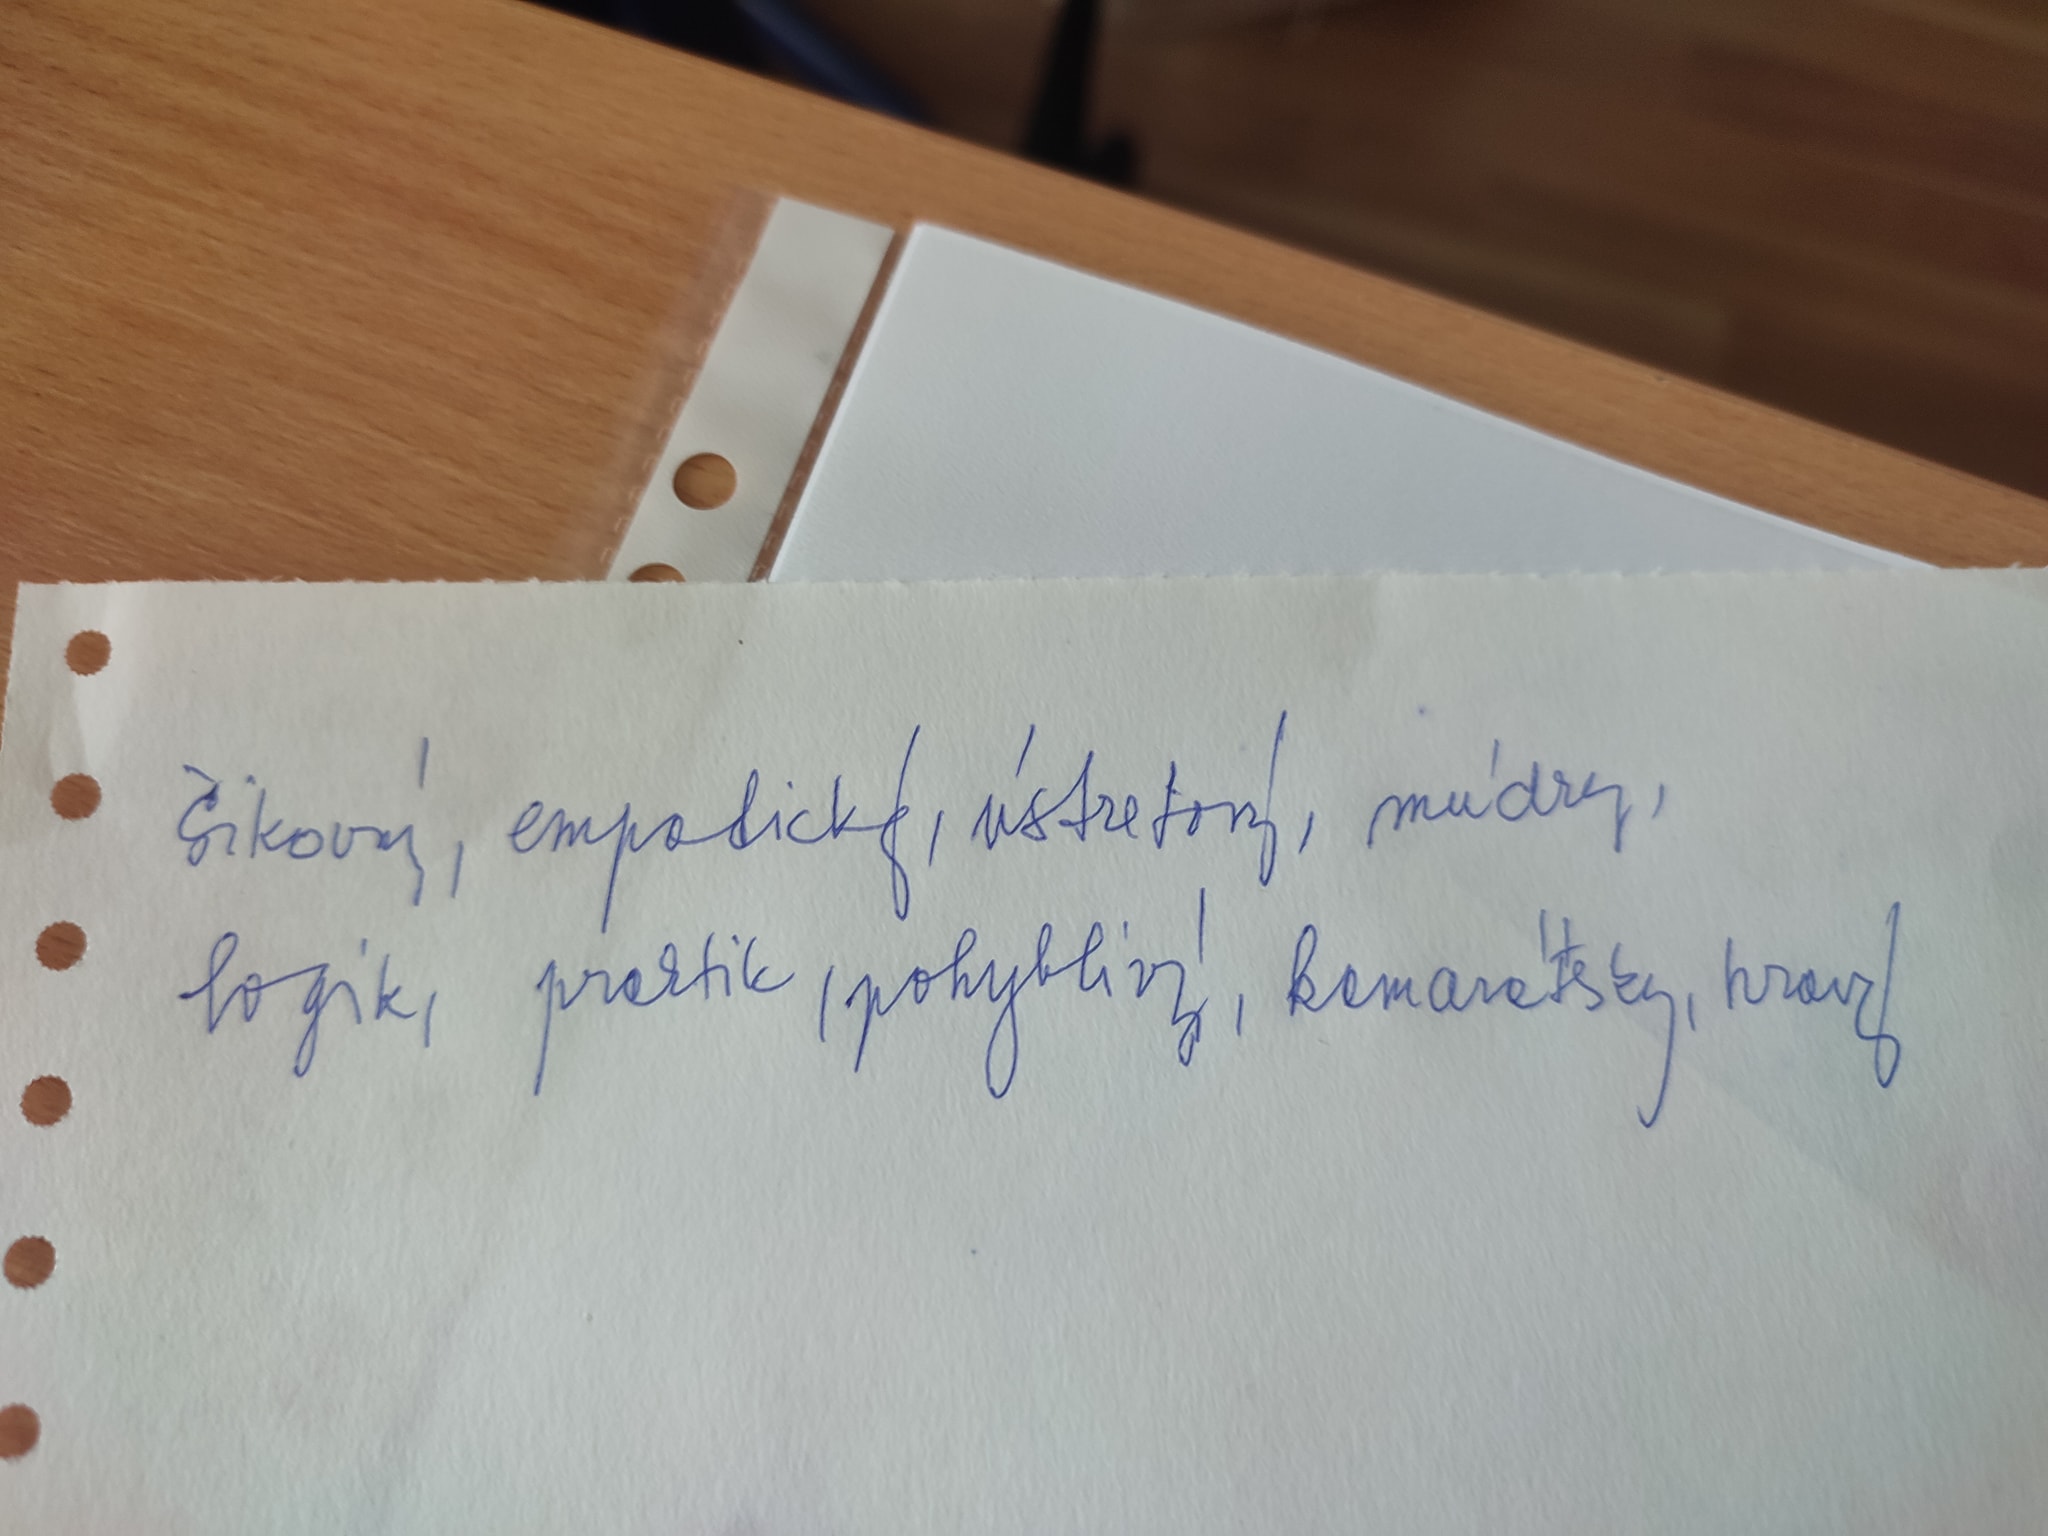 Šikovný, empatický, ústretový, múdry,
logik, praktik, pohyblivý, kamarátsky, hravý